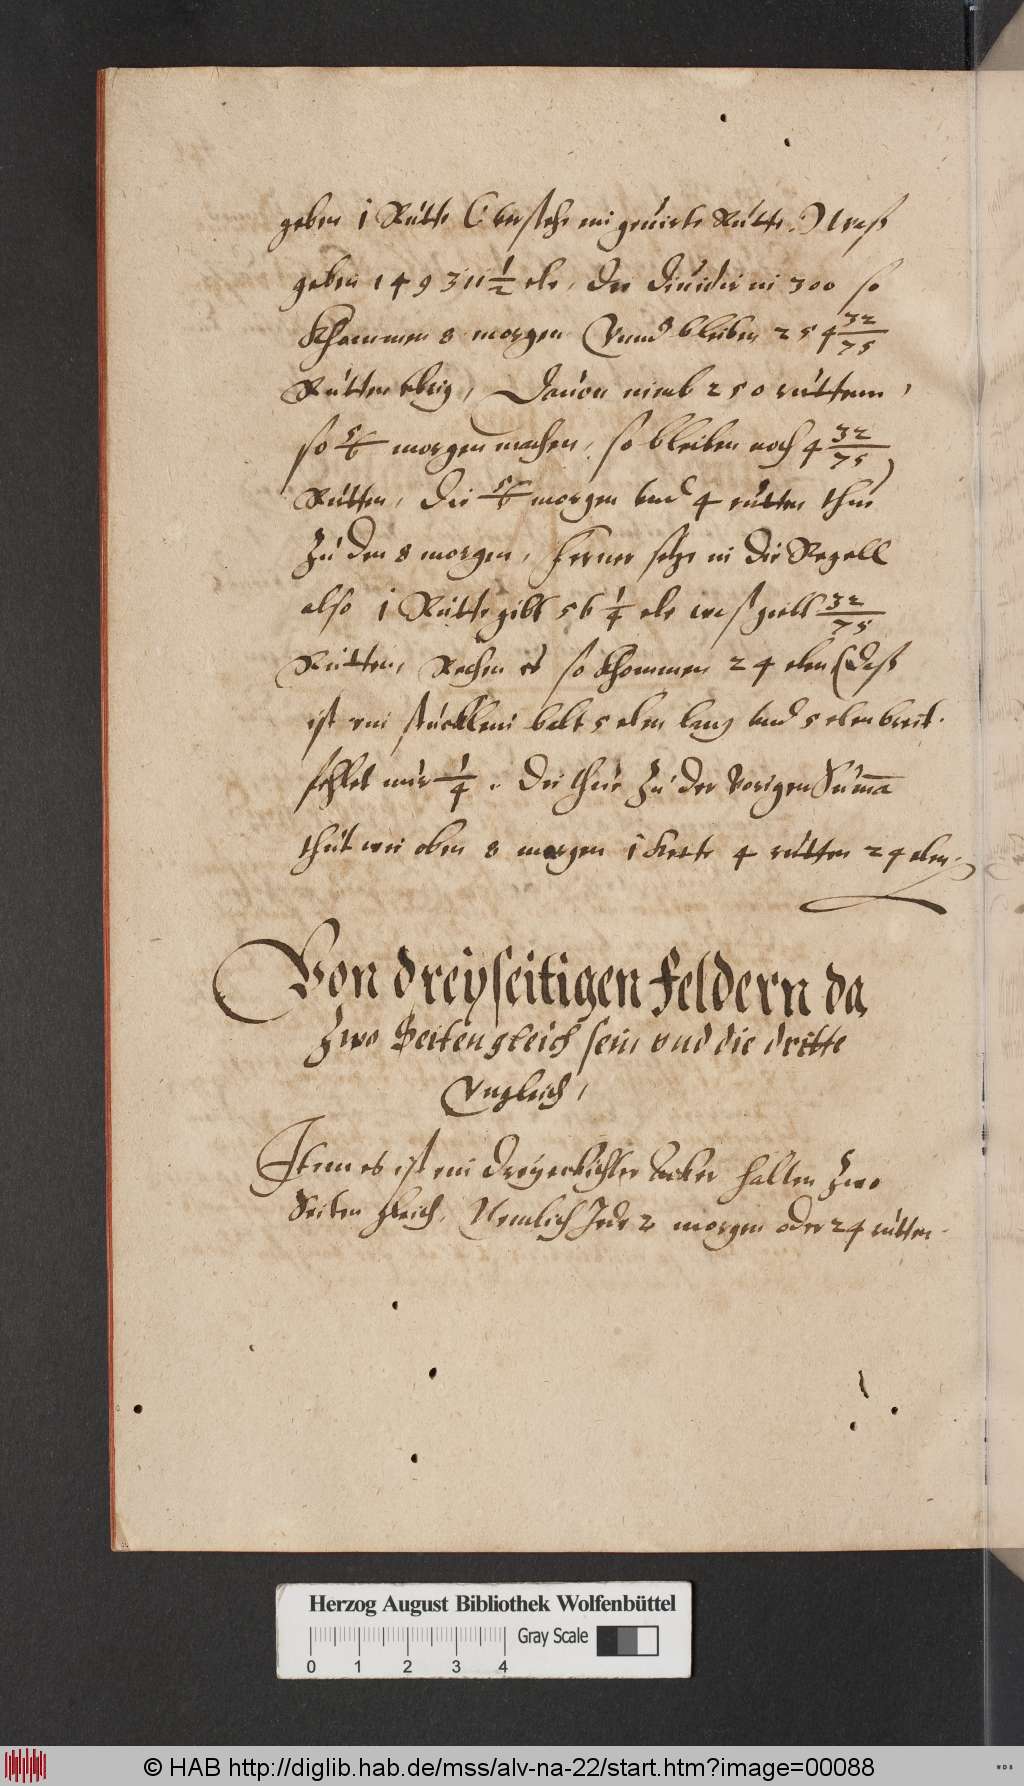 geben 1 Rutte (versteh ein geuirte Rutte.) waß
geben 149311 1/2 ele, die diuidir in 300 so
khommen 8 morgen Vnnd bleiben 254 32/75
Rutten vbrig, Dauon nimb 250 ruttenn,
so 5/6 morgen machen, so bleiben noch 4 32/75
Rutten, die 5/6 morgen vnd 4 rutten thue
zu den 8 morgen, ferner setze in die Regell
also 1 Rutte gibt 56 1/4 ele waß gibt 32/75
Rutten, Rechen es so khommen 24 elen (Daß
ist ein stucklein balt 5 elen lang vnd 5 elen breit.
fehlet nur 1/4. Die thue zu der vorigen Summa
thut wie oben 8 morgen 4 rutten 24 elen.
Von dreyseitigen feldern da
zwo Seiten gleich sein vnd die dritte
Vngleich,
Item es ist ein dreyeckichter Acker halten zwo
Seiten gleich, Nemlich Jede 2 morgen oder 24 rutten.
Herzog August Bibliothek Wolfenbüttel
Gray Scale
0 1 2 3 4
© HAB http://diglib.hab.de/mss/alv-na-22/start.htm?image=00088